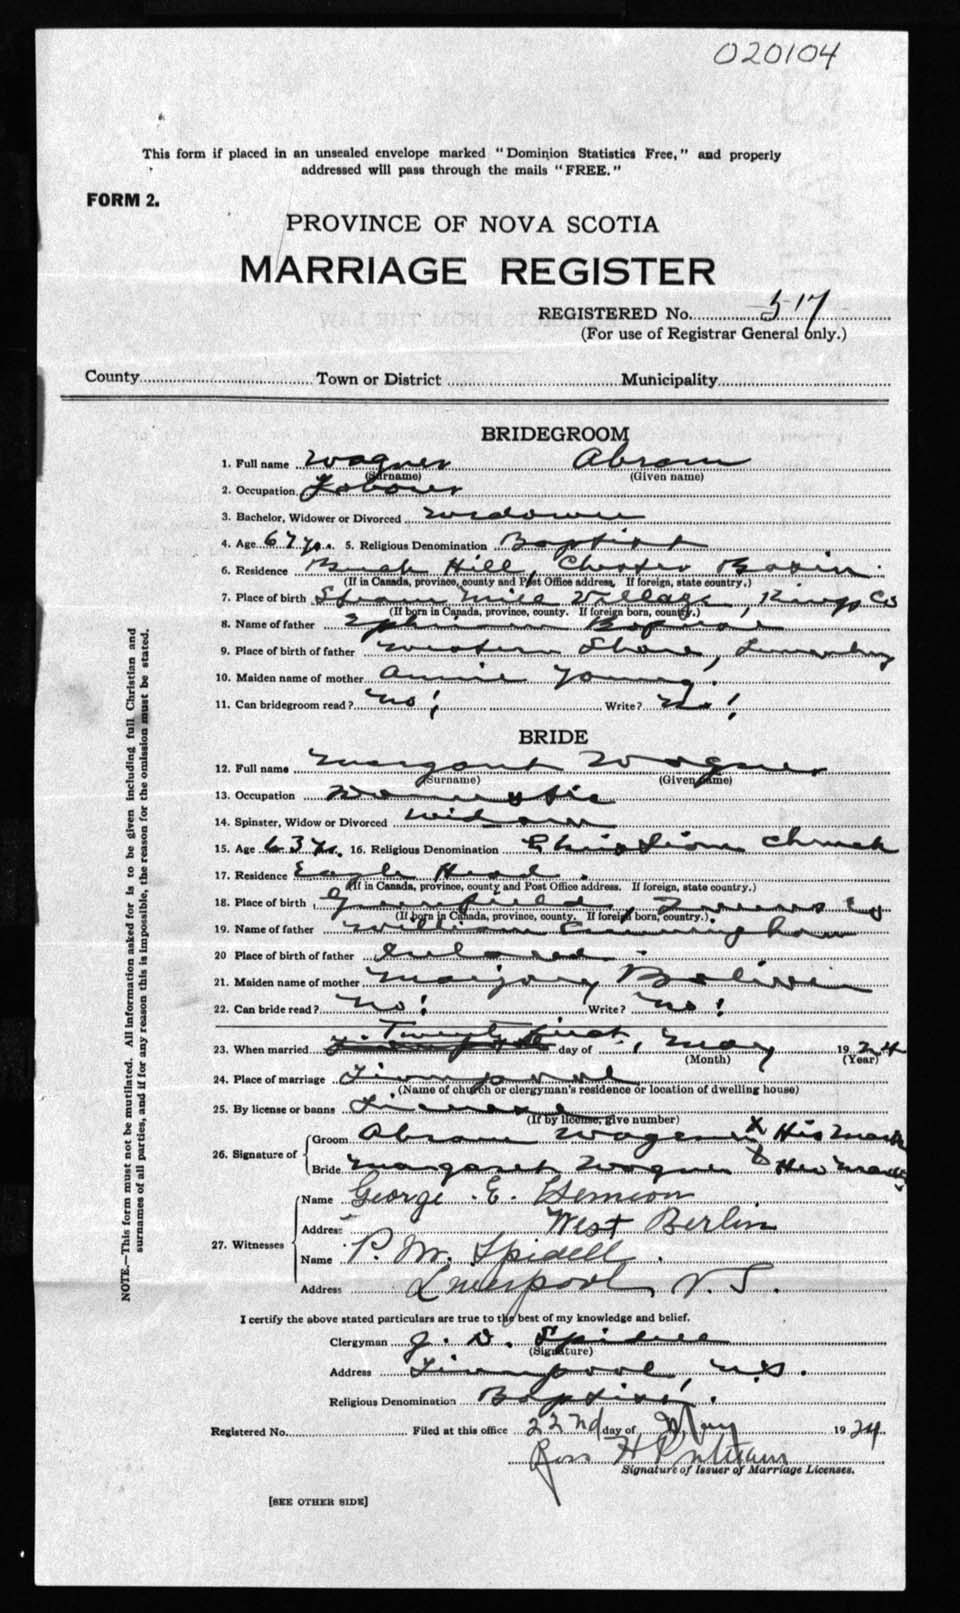 020104
This form if placed in an unsealed envelope marked "Dominion Statistics Free," and properly
addressed will pass through the mails "FREE."
FORM 2.
PROVINCE OF NOVA SCOTIA
MARRIAGE REGISTER
REGISTERED No. 517
(For use of Registrar General only.)
County Town or District Municipality
BRIDEGROOM
1. Full name Wagner Abram
(Surname) (Given name)
2. Occupation Labourer
3. Bachelor, Widower or Divorced widower
4. Age 67 yrs. 5. Religious Denomination Baptist
6. Residence Hill, Chester Basin.
(If in Canada, province, county and Post Office address. If foreign, state country.)
7. Place of birth Steam Mill Village, Kings Co
(If born in Canada, province, county. If foreign born, country.)
8. Name of father Ephraim
9. Place of birth of father Western Shore, Lunenburg
10. Maiden name of mother Annie Young.
11. Can bridegroom read? No! Write? No!
BRIDE
12. Full name Margaret Wagner
(Surname) (Given name)
13. Occupation Domestic
14. Spinster, Widow or Divorced Widow
15. Age 63 yrs. 16. Religious Denomination Christian Church
17. Residence Eagle Head.
(If in Canada, province, county and Post Office address. If foreign, state country.)
18. Place of birth Greenfield, Queens Co
(If born in Canada, province, county. If foreign born, country.)
19. Name of father William Cunningham
20 Place of birth of father Ireland
21. Maiden name of mother Marjory Bolivin
22. Can bride read? No! Write? No!
23. When married Twenty first day of May 1924
(Month) (Year)
24. Place of marriage Liverpool
(Name of church or clergyman's residence or location of dwelling house)
25. By license or banns License
(If by license, give number)
26. Signature of Groom Abram Wagner X His Mark
Bride Margaret Wagner X Her Mark
27. Witnesses Name George E.
Address West Berlin
Name P. M. Spidell.
Address Liverpool, N.S.
I certify the above stated particulars are true to the best of my knowledge and belief.
Clergyman J. D. Spidell
(Signature)
Address Liverpool, N.S.
Religious Denomination Baptist.
Registered No. Filed at this office 22nd day of May 1924
Signature of Issuer of Marriage Licenses.
[SEE OTHER SIDE]
NOTE.—This form must not be mutilated. All information asked for is to be given including full Christian and
surnames of all parties, and if for any reason this is impossible, the reason for the omission must be stated.